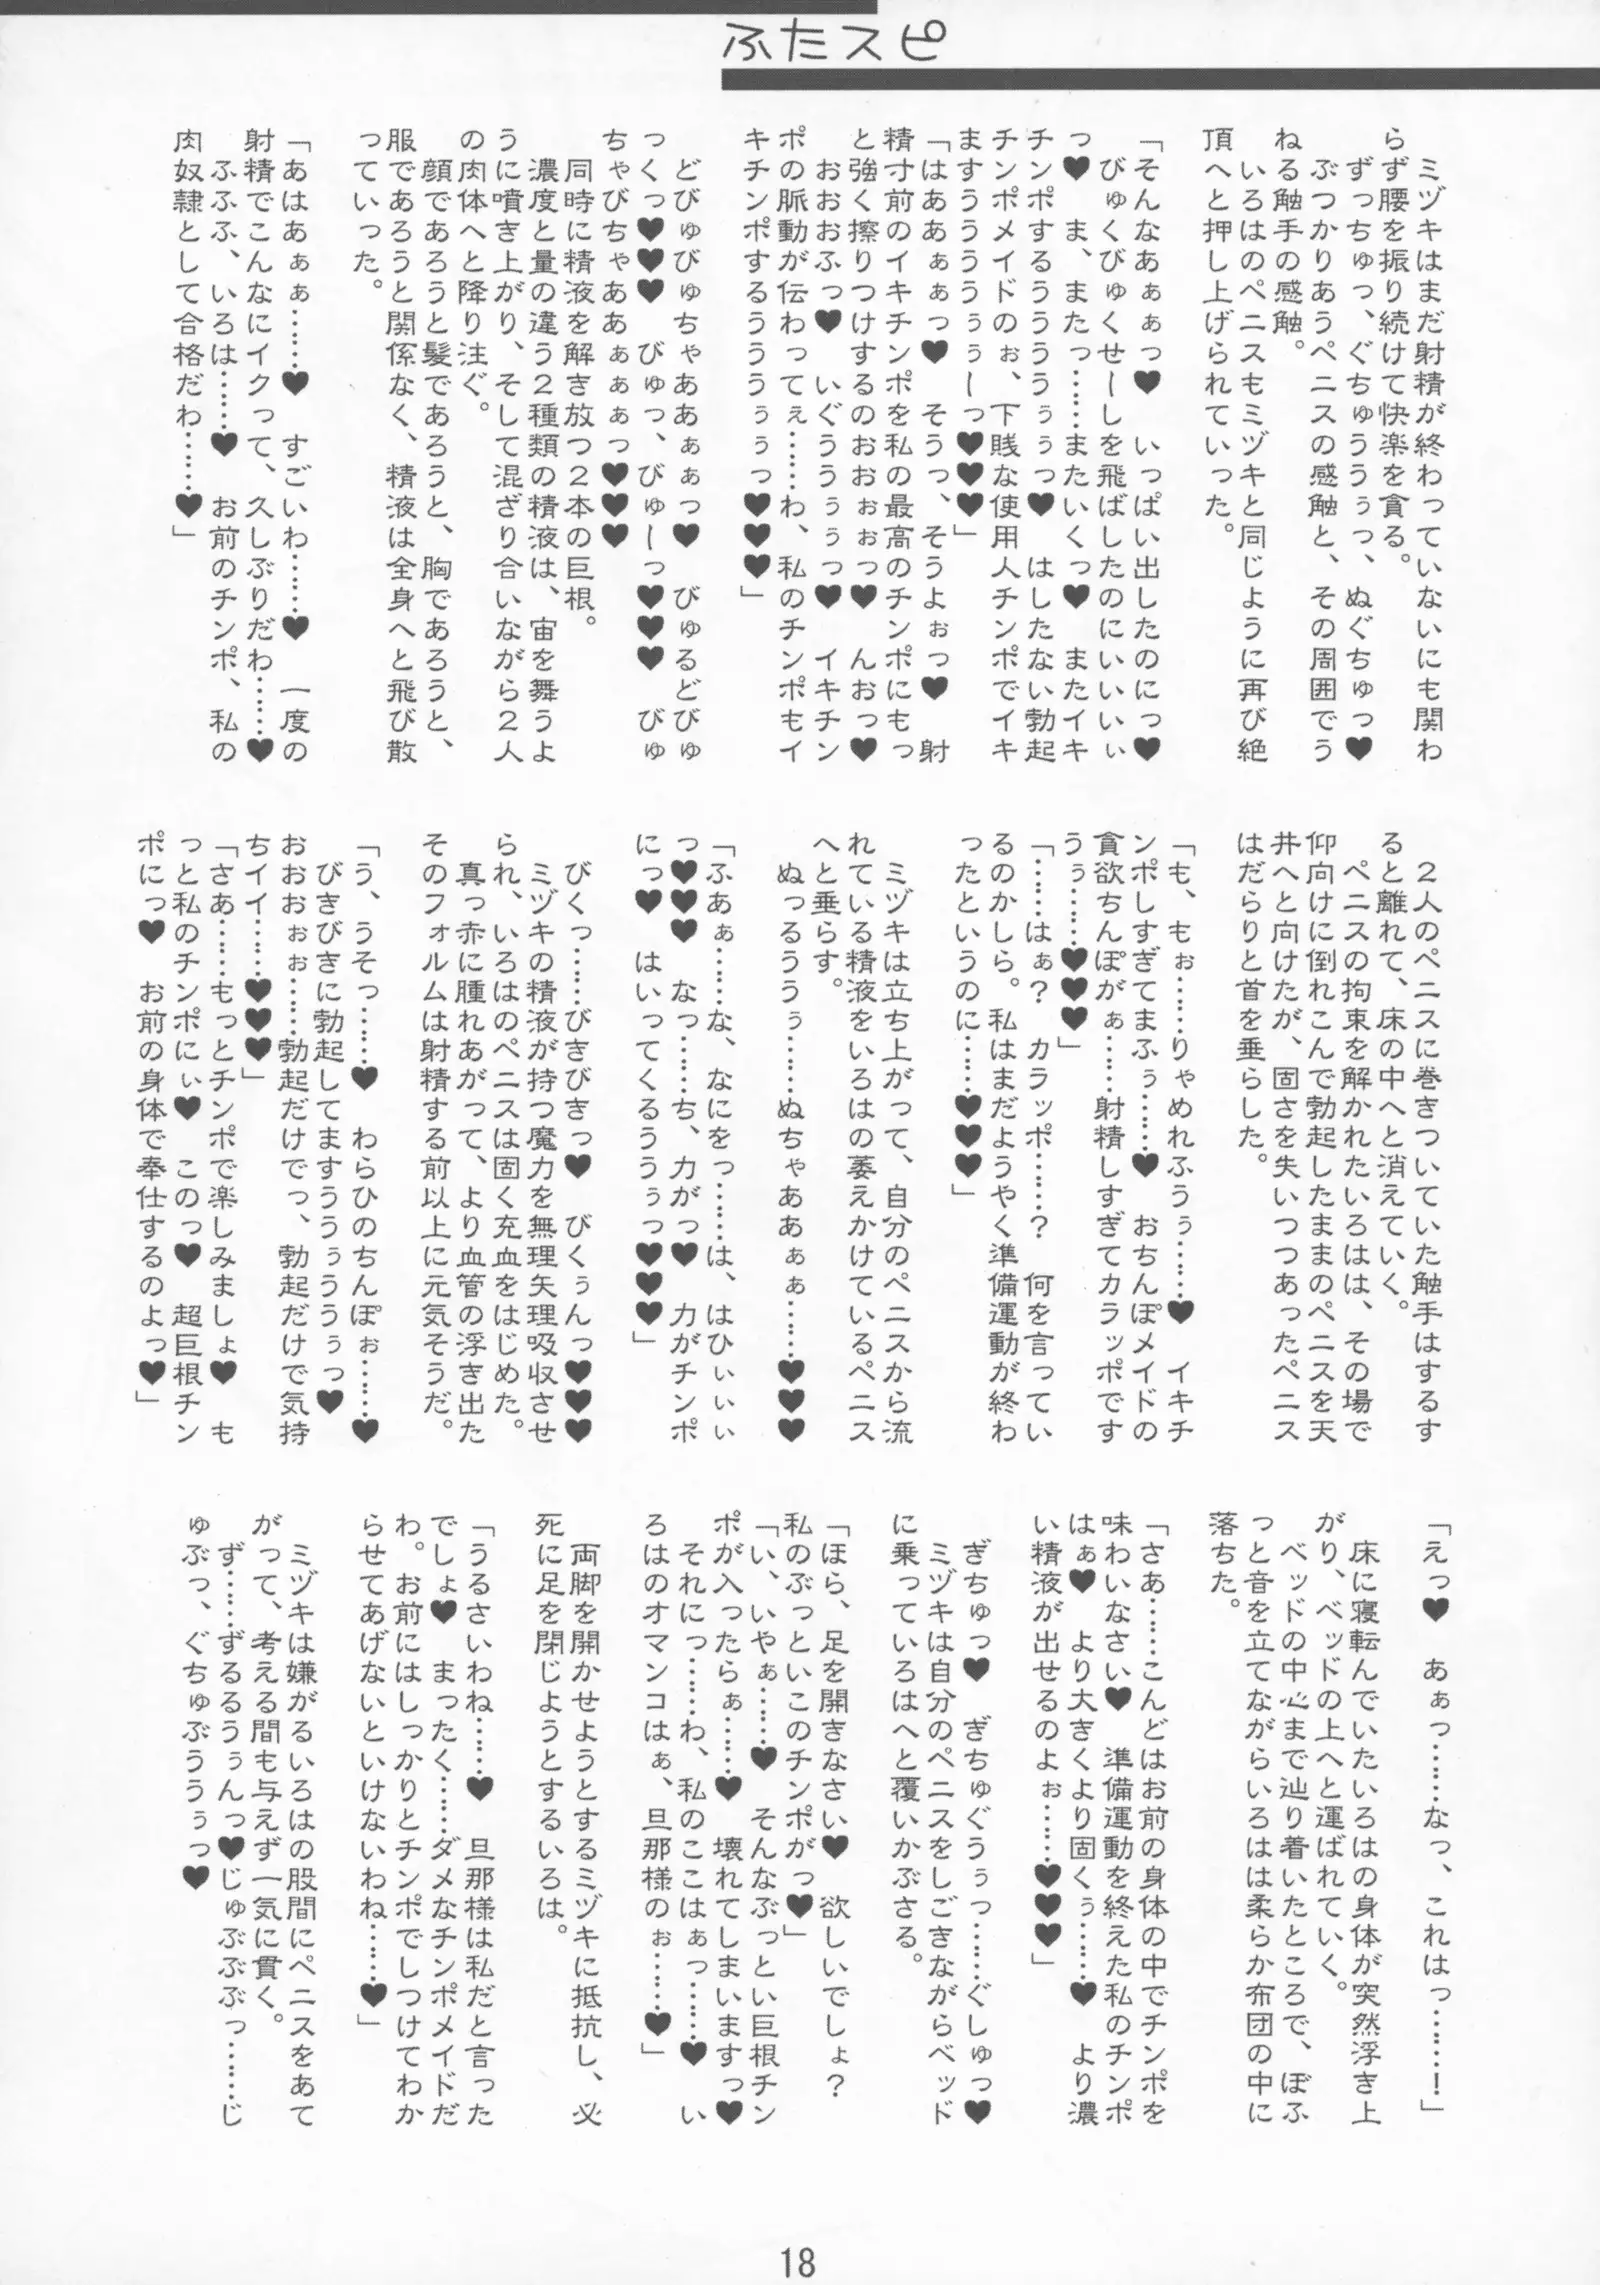 ふたスピ
ミヅキはまだ射精が終わっていないにも関わ
らず腰を振り続けて快楽を貪る。
ずっちゅっ、ぐちゅううぅっ、ぬぐちゅっ♥
ぶつかりあうペニスの感触と、その周囲でう
ねる触手の感触。
いろはのペニスもミヅキと同じように再び絶
頂へと押し上げられていった。
「そんなあぁぁっ♥　いっぱい出したのにっ♥
びゅくびゅくせーしを飛ばしたのにいいいぃ
っ♥　ま、またっ……またいくっ♥　またイキ
チンポするうううぅぅっ♥　はしたない勃起
チンポメイドのぉ、下賎な使用人チンポでイキ
ますうううぅぅーっ♥♥♥」
「はああぁぁっ♥　そうっ、そうよぉっ♥　射
精寸前のイキチンポを私の最高のチンポにもっ
と強く擦りつけするのおおぉぉっ♥　んおっ♥
おおおふっ♥　いぐううぅぅっ♥　イキチン
ポの脈動が伝わってぇ……わ、私のチンポもイ
キチンポするうううぅぅっ♥♥♥」
どびゅびゅちゃああぁぁっ♥　びゅるどびゅ
っくっ♥♥♥　びゅっ、びゅーっ♥♥♥　びゅ
ちゃびちゃああぁぁぁっ♥♥♥
同時に精液を解き放つ２本の巨根。
濃度と量の違う２種類の精液は、宙を舞うよ
うに噴き上がり、そして混ざり合いながら２人
の肉体へと降り注ぐ。
顔であろうと髪であろうと、胸であろうと、
服であろうと関係なく、精液は全身へと飛び散
っていった。
「あはあぁぁ……♥　すごいわ……♥　一度の
射精でこんなにイクって、久しぶりだわ……♥
ふふふ、いろは……♥　お前のチンポ、私の
肉奴隷として合格だわ……♥」
２人のペニスに巻きついていた触手はするす
ると離れて、床の中へと消えていく。
ペニスの拘束を解かれたいろはは、その場で
仰向けに倒れこんで勃起したままのペニスを天
井へと向けたが、固さを失いつつあったペニス
はだらりと首を垂らした。
「も、もぉ……りゃめれふうぅ……♥　イキチ
ンポしすぎてまふぅ……♥　おちんぽメイドの
貪欲ちんぽがぁ……射精しすぎてカラッポです
うぅ……♥♥♥」
「……はぁ？　カラッポ……？　何を言ってい
るのかしら。私はまだようやく準備運動が終わ
ったというのに……♥♥♥」
ミヅキは立ち上がって、自分のペニスから流
れている精液をいろはの萎えかけているペニス
へと垂らす。
ぬっるううぅ……ぬちゃああぁぁ……♥♥♥
「ふあぁ……な、なにをっ……は、はひぃぃぃ
っ♥♥♥　なっ……ち、力がっ♥　力がチンポ
にっ♥　はいってくるううぅっ♥♥♥」
びくっ……びきびきっ♥　びくぅんっ♥♥♥
ミヅキの精液が持つ魔力を無理矢理吸収させ
られ、いろはのペニスは固く充血をはじめた。
真っ赤に腫れあがって、より血管の浮き出た
そのフォルムは射精する前以上に元気そうだ。
「う、うそっ……♥　わらひのちんぽぉ……♥
びきびきに勃起してますううぅううぅっ♥
おおおぉぉ……勃起だけでっ、勃起だけで気持
ちイイ……♥♥♥」
「さあ……もっとチンポで楽しみましょ♥　も
っと私のチンポにぃ♥　このっ♥　超巨根チン
ポにっ♥　お前の身体で奉仕するのよっ♥」
「えっ♥　あぁっ……なっ、これはっ……！」
床に寝転んでいたいろはの身体が突然浮き上
がり、ベッドの上へと運ばれていく。
ベッドの中心まで辿り着いたところで、ぼふ
っと音を立てながらいろはは柔らか布団の中に
落ちた。
「さあ……こんどはお前の身体の中でチンポを
味わいなさい♥　準備運動を終えた私のチンポ
はぁ♥　より大きくより固くぅ……♥　より濃
い精液が出せるのよぉ……♥♥♥」
ぎちゅっ♥　ぎちゅぐうぅっ……ぐしゅっ♥
ミヅキは自分のペニスをしごきながらベッド
に乗っていろはへと覆いかぶさる。
「ほら、足を開きなさい♥　欲しいでしょ？
私のぶっといこのチンポがっ♥」
「い、いやぁ……♥　そんなぶっとい巨根チン
ポが入ったらぁ……♥　壊れてしまいますっ♥
それにっ……わ、私のここはぁっ……♥　い
ろはのオマンコはぁ、旦那様のぉ……♥」
両脚を開かせようとするミヅキに抵抗し、必
死に足を閉じようとするいろは。
「うるさいわね……♥　旦那様は私だと言った
でしょ♥　まったく……ダメなチンポメイドだ
わ。お前にはしっかりとチンポでしつけてわか
らせてあげないといけないわね……♥」
ミヅキは嫌がるいろはの股間にペニスをあて
がって、考える間も与えず一気に貫く。
ず……ずるるうぅんっ♥じゅぶぶぶっ……じ
ゅぶっ、ぐちゅぶううぅっ♥
18